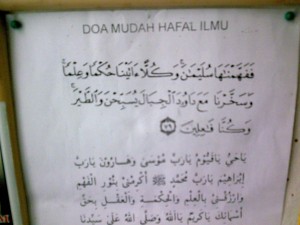 DOA MUDAH HAFAL ILMU
فَفَهَّمْنَٰهَا سُلَيْمَٰنَ ۚ وَكُلًّا ءَاتَيْنَا حُكْمًا وَعِلْمًا ۚ
وَسَخَّرْنَا مَعَ دَاوُۥدَ ٱلْجِبَالَ يُسَبِّحْنَ وَٱلطَّيْرَ ۚ
وَكُنَّا فَٰعِلِينَ ﴿٧٩﴾
يَاحَيُّ يَاقَيُّوْمُ يَارَبَّ مُوْسَى وَهَارُوْنَ يَارَبَّ
اِبْرَاهِيْمَ يَارَبَّ مُحَمَّدٍ ﷺ أَكْرِمْنِيْ بِنُوْرِ الْفَهْمِ
وَارْزُقْنِيْ بِالْعِلْمِ وَالْحِكْمَةِ وَالْعَقْلِ بِحَقِّ
يَاكَرِيْمُ يَااللهُ وَصَلَّى اللهُ عَلَى سَيِّدِنَا